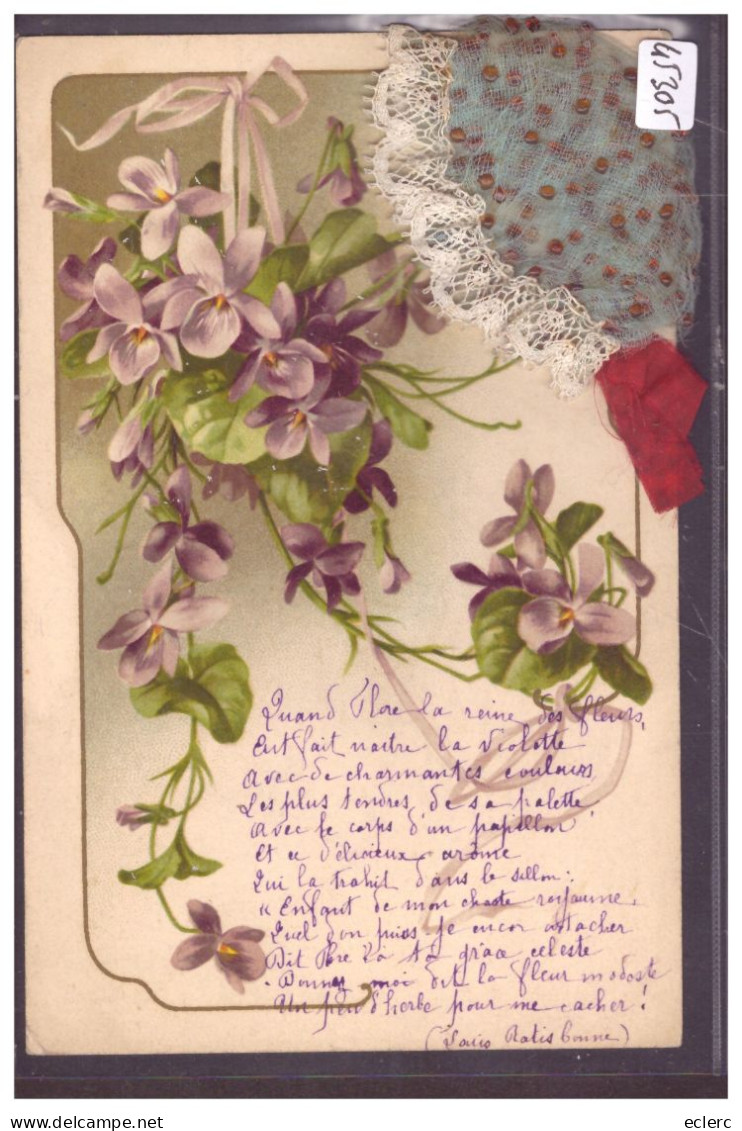 45305
Quand Flore la reine des fleurs,
Eut fait naître la Violette
Avec de charmantes couleurs,
Les plus tendres de sa palette,
Avec le corps d'un papillon
Et ce délicieux arôme
Qui la trahit dans le sillon :
« Enfant de mon chaste royaume,
Quel don puis-je encor attacher
Dit Flore à ta grâce céleste
- Donnez moi dit la fleur modeste
Un peu d'herbe pour me cacher !
(Louis Ratis bonne)
eclerc